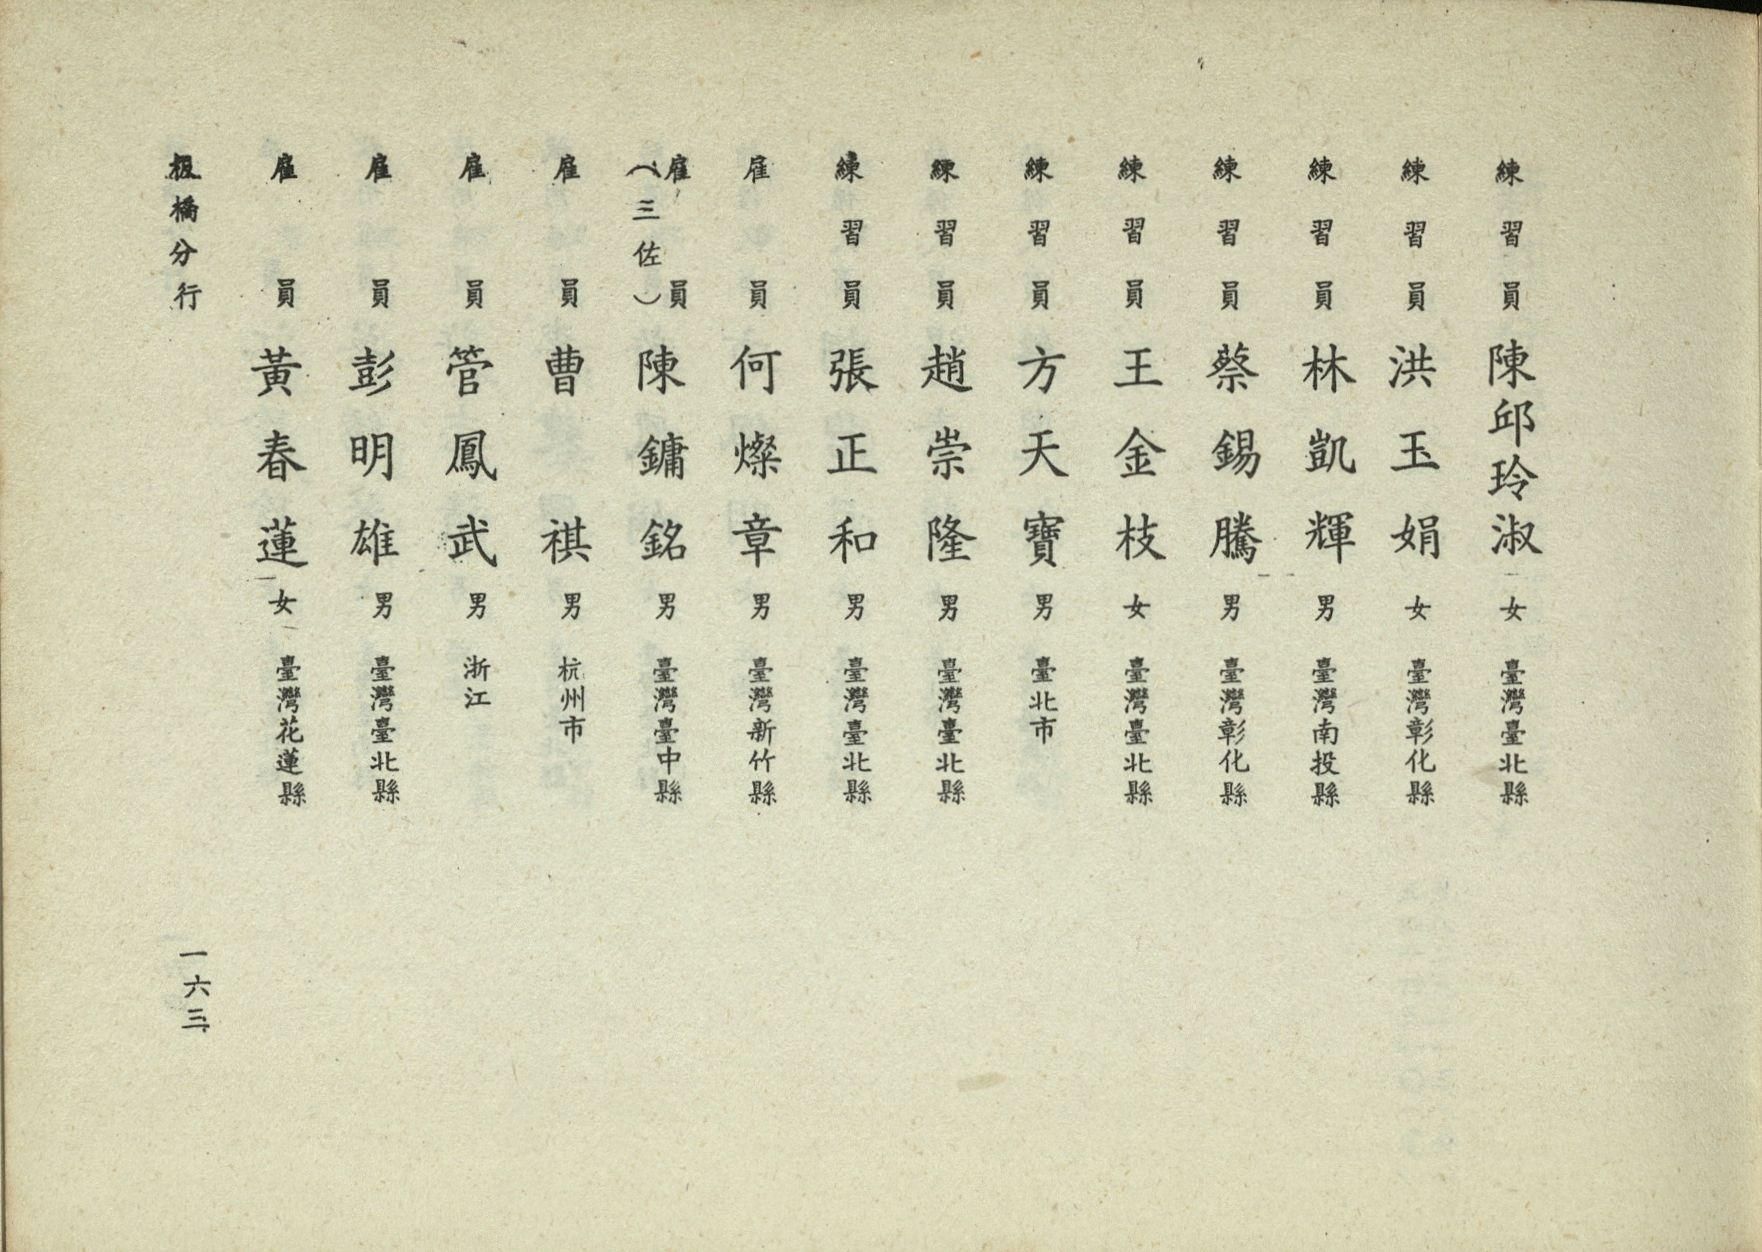 練習員 陳邱玲淑 女 臺灣臺北縣
練習員 洪玉娟 女 臺灣彰化縣
練習員 林凱輝 男 臺灣南投縣
練習員 蔡錫騰 男 臺灣彰化縣
練習員 王金枝 女 臺灣臺北縣
練習員 方天寶 男 臺北市
練習員 趙崇隆 男 臺灣臺北縣
練習員 張正和 男 臺灣臺北縣
雇員 何燦章 男 臺灣新竹縣
雇員(三佐) 陳鏞銘 男 臺灣臺中縣
雇員 曹祺 男 杭州市
雇員 管鳳武 男 浙江
雇員 彭明雄 男 臺灣臺北縣
雇員 黃春蓮 女 臺灣花蓮縣
板橋分行 一六三